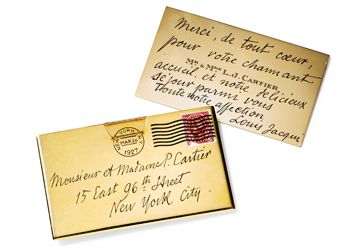 Merci, de tout cœur,
pour votre charmant
MR & MRS L.-J. CARTIER
accueil et notre délicieux
séjour parmi vous
Toute notre affection
Louis Jacques
MAR 26
1927
Monsieur et Madame P. Cartier
15 East 96th Street
New York City.